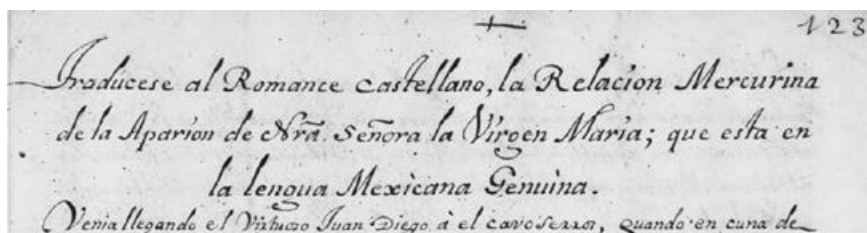 123
Tradúcese al Romance Castellano, la Relacion Mercurina
de la Aparion de Nrã. Señora la Virgen Maria; que esta en
la lengua Mexicana Genuina.
Venia llegando el Virtuoso Juan Diego à el cavo serros, quando en cuna de